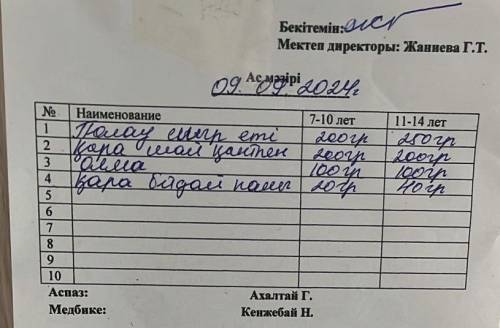 Бекітемін:
Мектеп директоры: Жаниева Г.Т.
Ас мәзірі
09. 09. 2024г
№ Наименование 7-10 лет 11-14 лет
1 Палау сиыр еті 200гр 250гр
2 қара шай қантпен 200гр 200гр
3 алма 100гр 100гр
4 қара бидай наны 20гр 40гр
5
6
7
8
9
10
Аспаз: Ахалтай Г.
Медбике: Кенжебай Н.